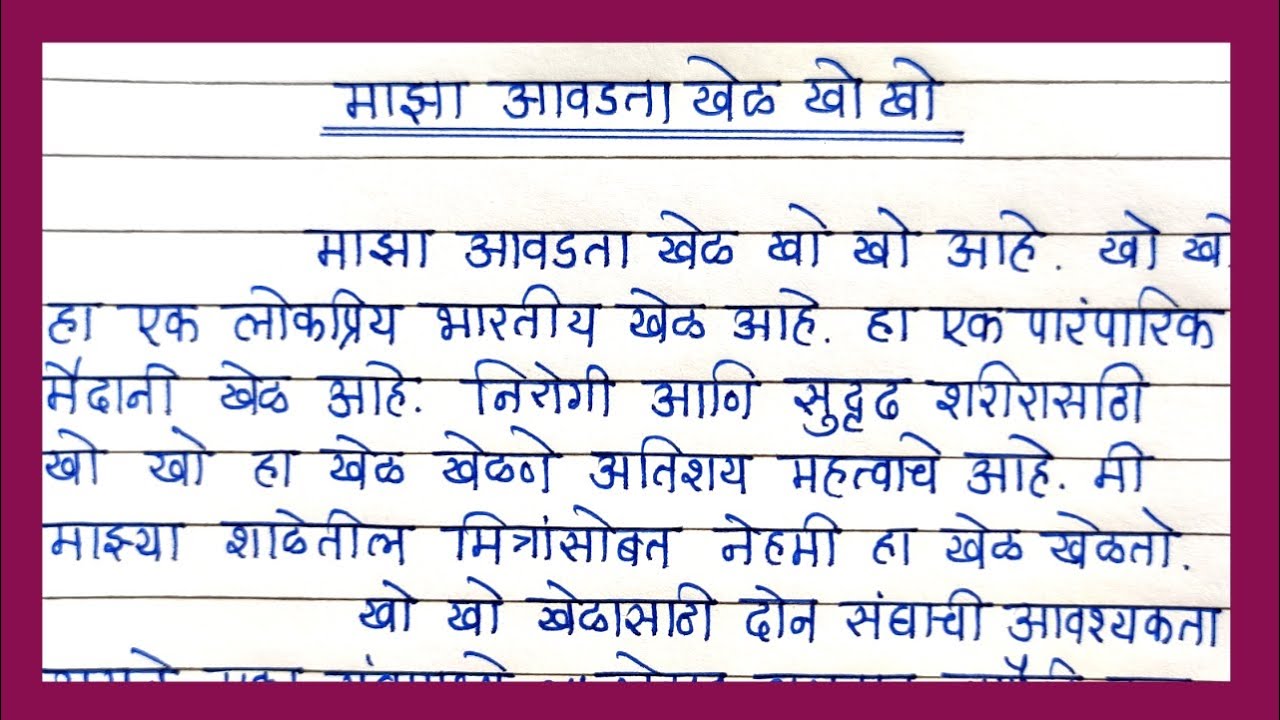 माझा आवडता खेळ खो खो
माझा आवडता खेळ खो खो आहे. खो खो
हा एक लोकप्रिय भारतीय खेळ आहे. हा एक पारंपारिक
मैदानी खेळ आहे. निरोगी आणि सुदृढ शरीरासाठी
खो खो हा खेळ खेळणे अतिशय महत्वाचे आहे. मी
माझ्या शाळेतील मित्रांसोबत नेहमी हा खेळ खेळतो.
खो खो खेळासाठी दोन संघाची आवश्यकता